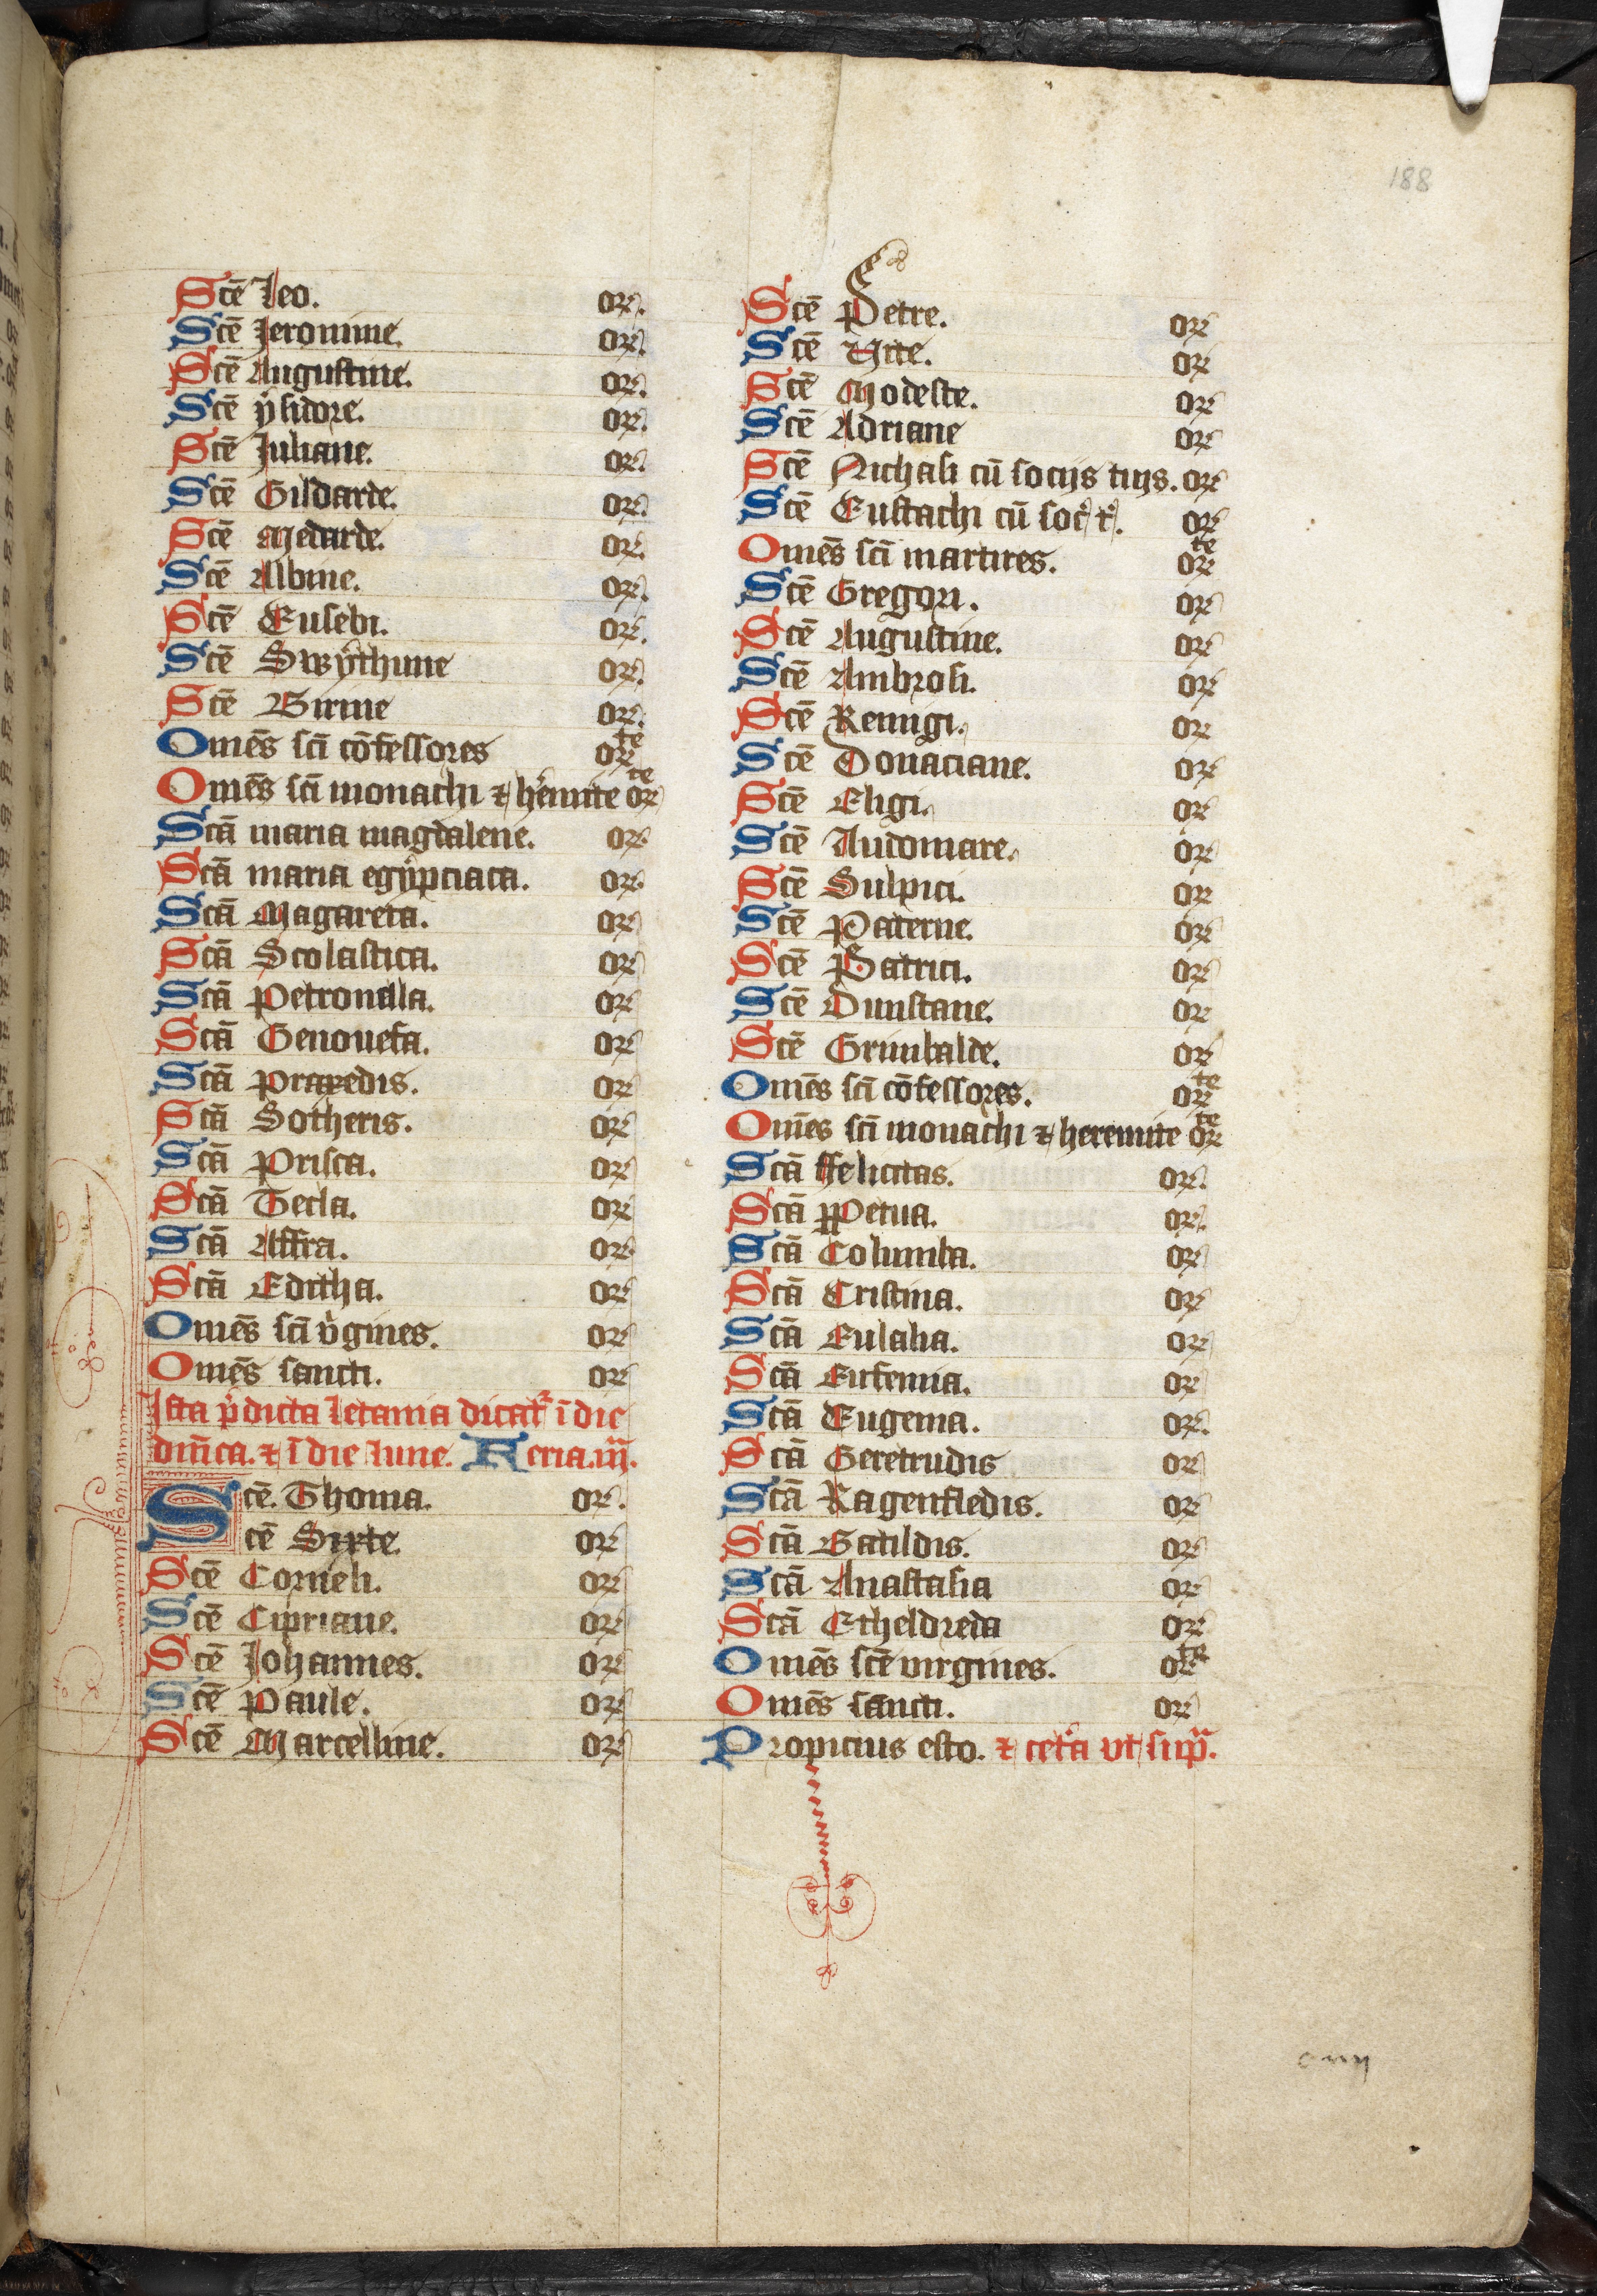 188
Scē Leo. or̄.
Scē Jeronime. or̄.
Scē Augustine. or̄.
Scē ẏsidore. or̄.
Scē Juliane. or̄.
Scē Gildarde. or̄.
Scē Medarde. or̄.
Scē Albine. or̄.
Scē Eusebi. or̄.
Scē Swẏthune or̄.
Scē Birine or̄.
Omēs sci cōfessores orᵗᵉ
Omēs sci monachi ⁊ h̓emite orᵗᵉ
Scā maria magdalene. or̄.
Scā maria egẏpciaca. or̄.
Scā Magareta. or̄
Scā Scolastica. or̄
Scā Petronilla. or̄
Scā Genouefa. or̄
Scā Praxedis. or̄
Scā Sotheris. or̄
Scā Prisca. or̄
Scā Tecla. or̄
Scā Affra. or̄
Scā Editha. or̄
Omēs sci v̓gines. or̄
Omēs sancti. or̄
Ista p̄dicta letania dicat᷑ ī die
dn̄ica. ⁊ ī die lune. Feria. iij.
Scē. Thoma. or̄.
Scē Sixte. or̄
Scē Corneli. or̄
Scē Cipriane. or̄
Scē Johannes. or̄
Scē Paule. or̄
Scē Marcelline. or̄
Scē Petre. or̄
Scē Vite. or̄
Scē Modeste. or̄
Scē Adriane or̄
Scē Nichasi cū socijs tuis. or̄
Scē Eustachi cū soc̓ t̓. or̄
Omēs sci martires. orᵗᵉ
Scē Gregori. or̄
Scē Augustine. or̄
Scē Ambrosi. or̄
Scē Remigi. or̄
Scē Donaciane. or̄
Scē Eligi. or̄
Scē Audomare. or̄
Scē Sulpici. or̄
Scē Paterne. or̄
Scē Patrici. or̄
Scē Dunstane. or̄
Scē Grimbalde. or̄
Omēs sci cōfessores. orᵗᵉ
Omēs sci monachi ⁊ heremite orᵗᵉ
Scā ffelicitas. or̄.
Scā ꝑPetua. or̄.
Scā Columba. or̄
Scā Cristina. or̄
Scā Eulalia. or̄
Scā Eufemia. or̄
Scā Eugenia. or̄.
Scā Geretrudis or̄
Scā Ragenfledis. or̄
Scā Batildis. or̄
Scā Anastasia or̄
Scā Etheldreda or̄
Omēs scē virgines. orᵗᵉ
Omēs sancti. or̄
Propicius esto. ⁊ cet̓a vt sup̃.